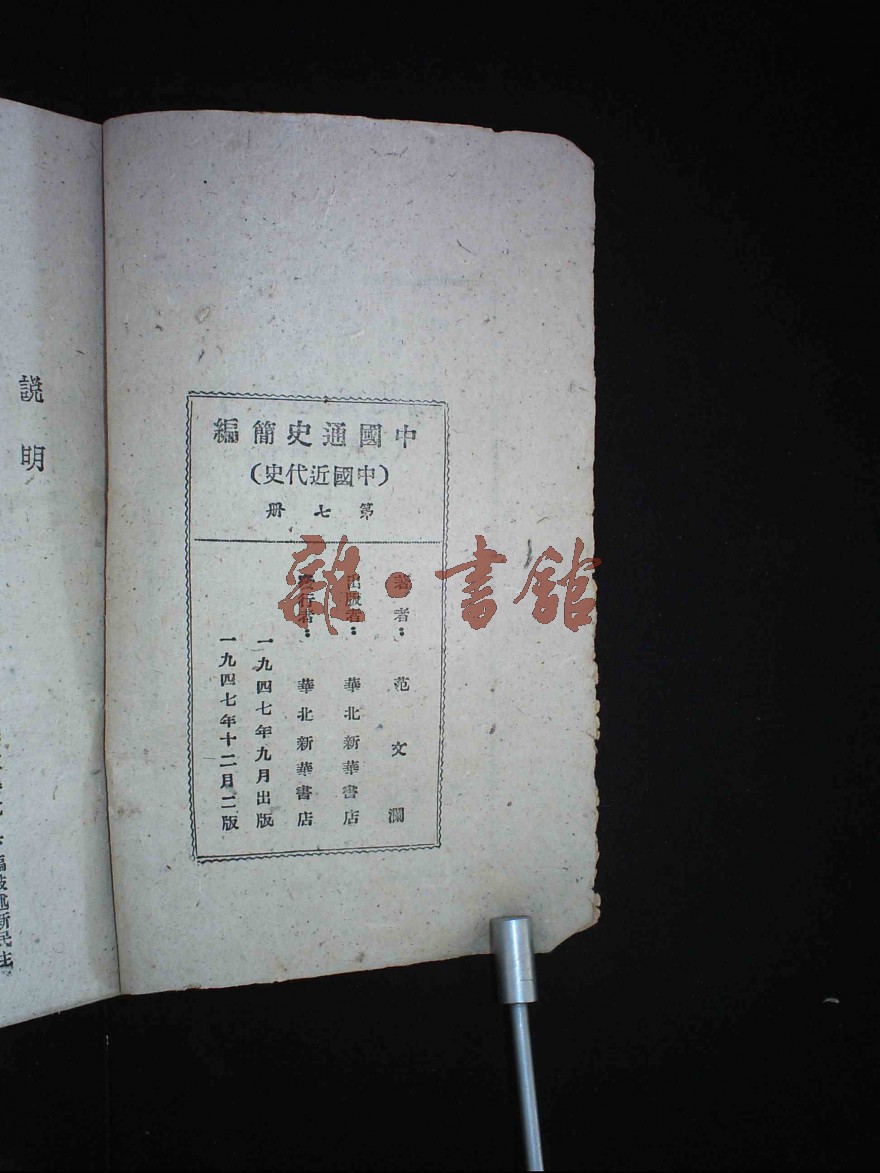 中國通史簡編
(中國近代史)
第七冊
著者：范文瀾
出版者：華北新華書店
發行者：華北新華書店
一九四七年九月出版
一九四七年十二月二版
說明
編敍述新民主
雜·書館